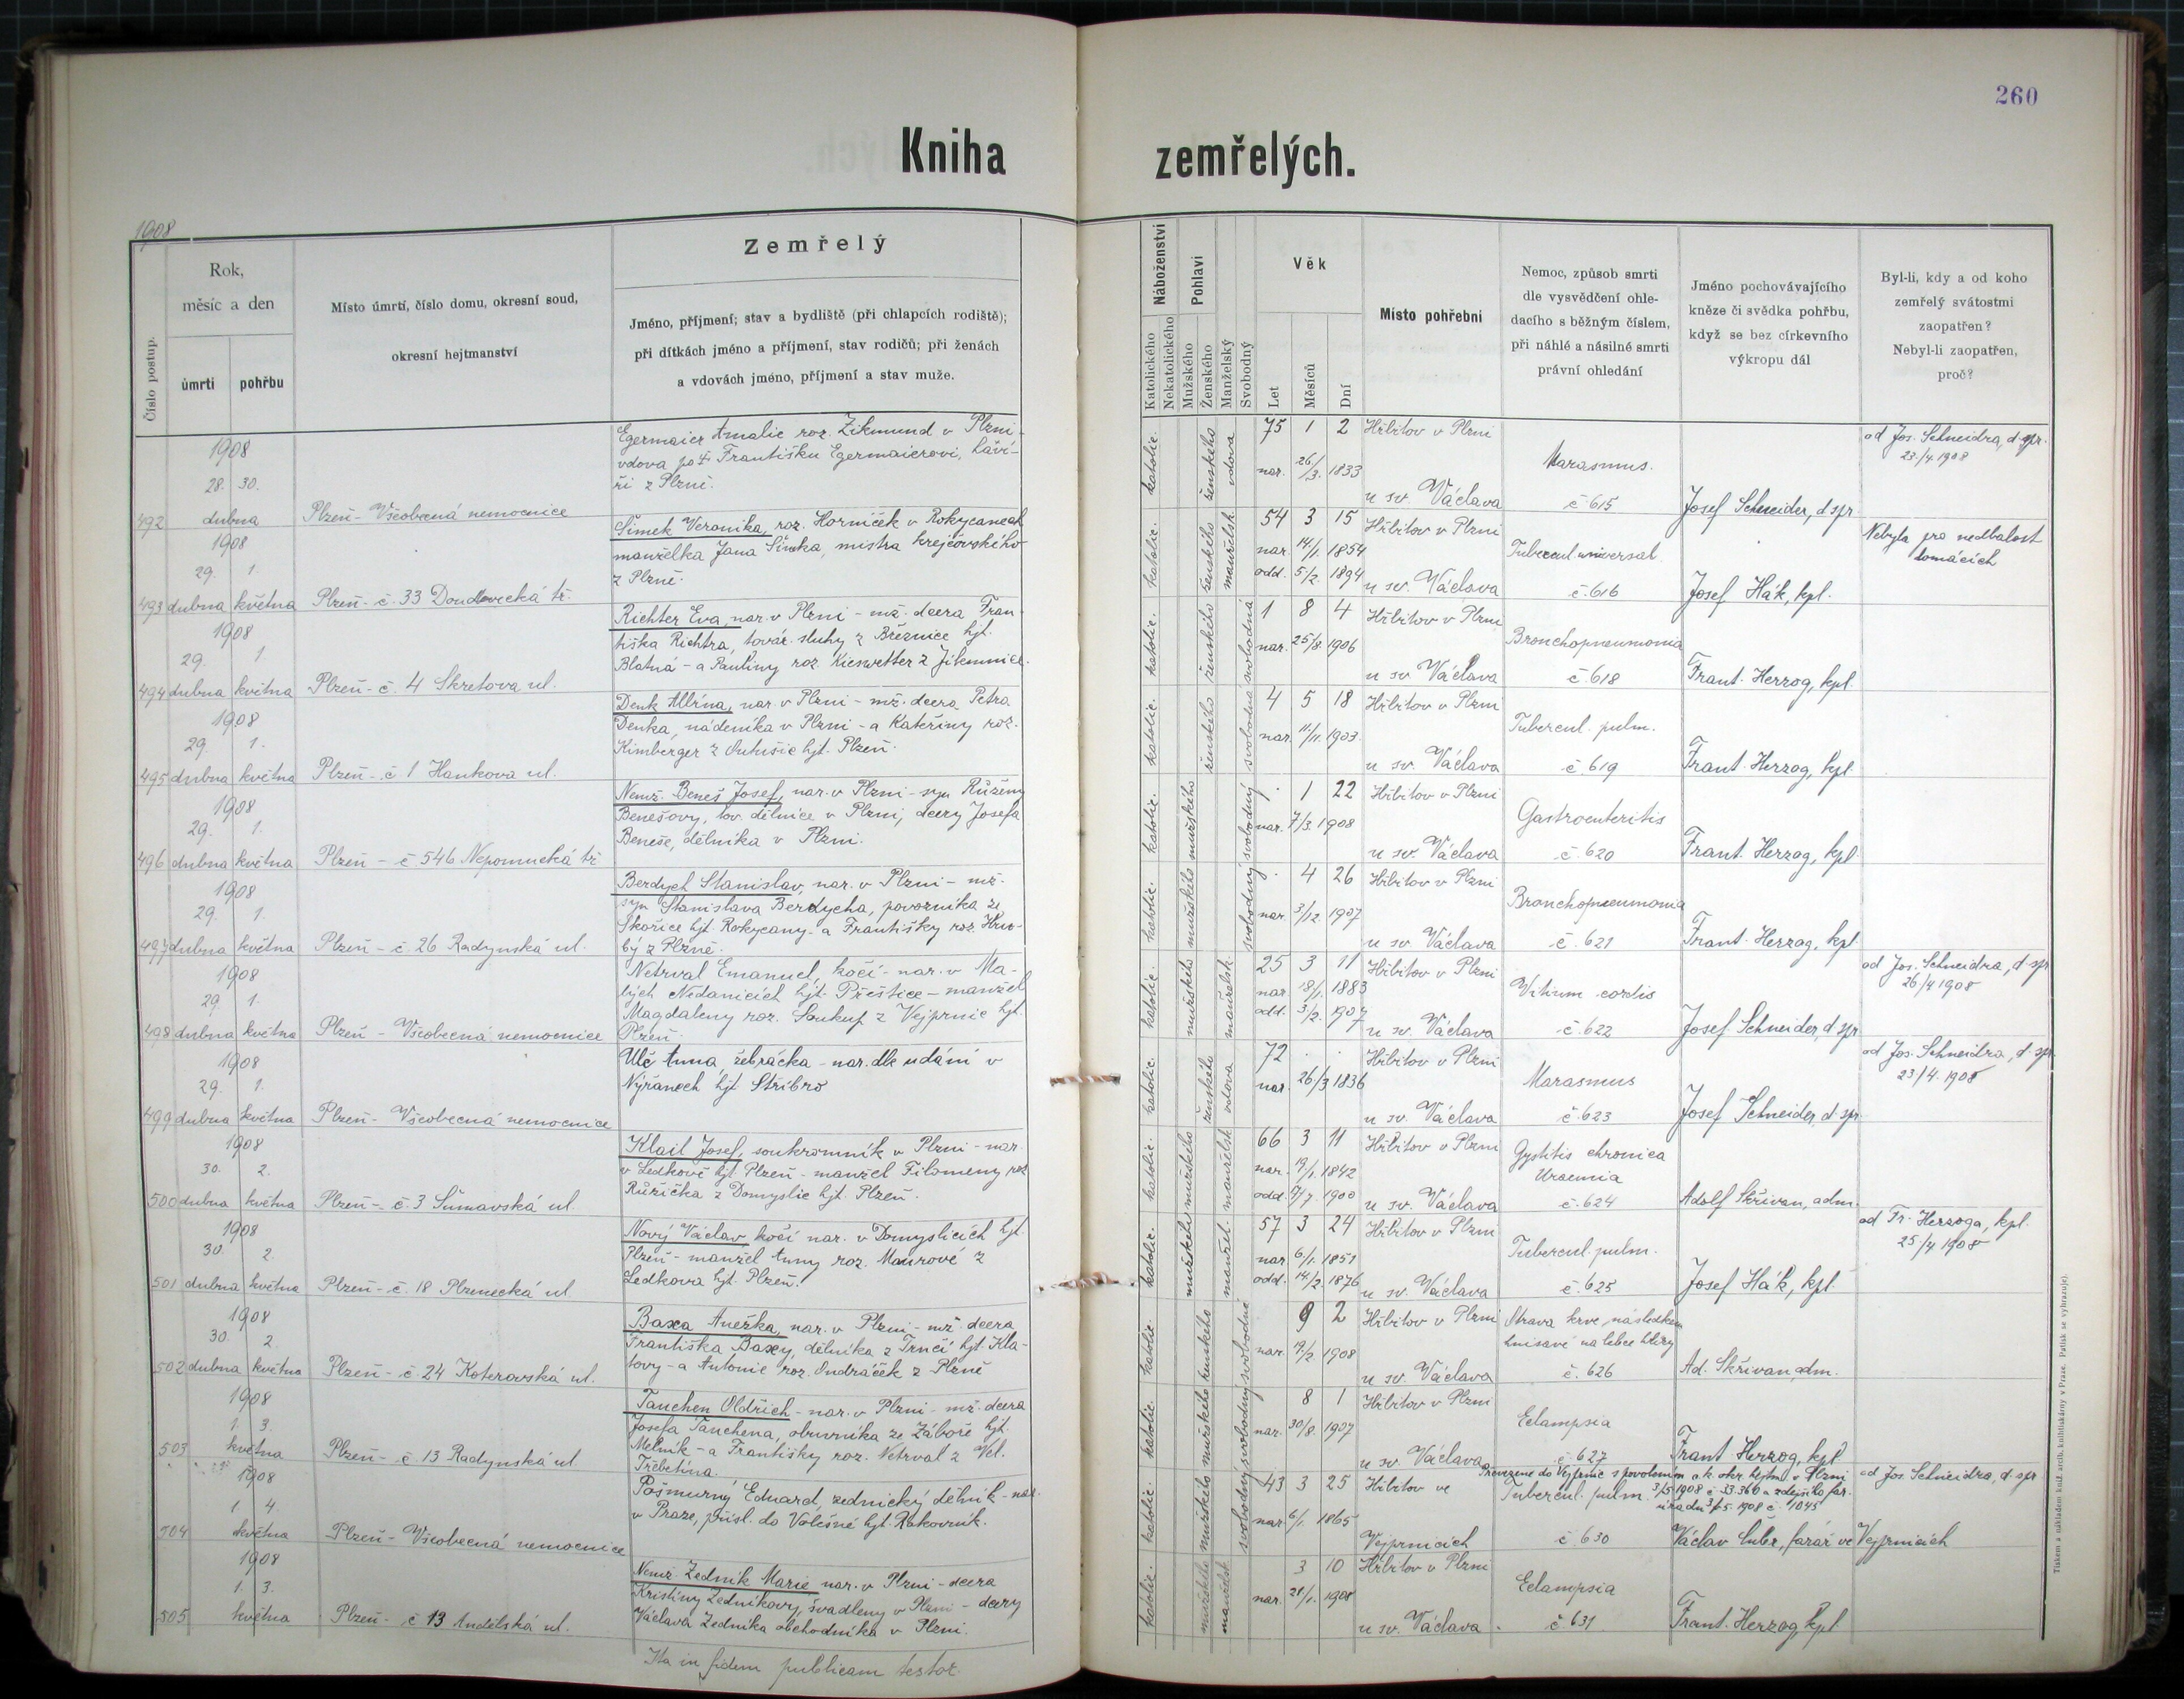 260
Kniha zemřelých.
1908
Číslo postup.
Rok,
měsíc a den
úmrtí
pohřbu
Místo úmrtí, číslo domu, okresní soud,
okresní hejtmanství
Zemřelý
Jméno, příjmení; stav a bydliště (při chlapcích rodiště);
při dítkách jméno a příjmení, stav rodičů; při ženách
a vdovách jméno, příjmení a stav muže.
Náboženství
Katolického
Nekatolického
Pohlaví
Mužského
Ženského
Manželský
Svobodný
Věk
Let
Měsíců
Dní
Místo pohřební
Nemoc, způsob smrti
dle vysvědčení ohle-
dacího s běžným číslem,
při náhlé a násilné smrti
právní ohledání
Jméno pochovávajícího
kněze či svědka pohřbu,
když se bez církevního
výkropu dál
Byl-li, kdy a od koho
zemřelý svátostmi
zaopatřen?
Nebyl-li zaopatřen,
proč?
492
1908
28. 30.
dubna
Plzeň - Všeobecná nemocnice
Egermaier Amalie roz. Zikmund v Plzni -
vdova po † Františku Egermaierovi, haví-
ři z Plzně.
katolic. ženského vdova
75 1 2
nar. 26/3. 1833
Hřbitov v Plzni
u sv. Václava
Marasmus.
č 615
Josef Schneider, d spr
od Jos. Schneidra, d. spr.
23./4. 1908
493
1908
29. 1.
dubna května
Plzeň - č. 33 Doudlevecká tř.
Šimek Veronika, roz. Horníček v Rokycanech
manželka Jana Šimka, mistra krejčovského
z Plzně.
katolic. ženského manželsk.
54 3 15
nar. 14/1. 1854
odd. 5/2. 1894
Hřbitov v Plzni
u sv. Václava
Tubercul universal.
č. 616
Josef Hák, kpl.
Nebyla pro nedbalost
domácích
494
1908
29. 1
dubna května
Plzeň - č. 4 Skretova ul.
Richter Eva, nar. v Plzni - mž. dcera Fran-
tiška Richtra, továr. sluhy z Březnice hjt.
Blatná - a Pauliny roz. Kieswetter z Jikmnice.
katolic. ženského svobodná
1 8 4
nar. 25/8. 1906
Hřbitov v Plzni
u sv. Václava
Bronchopneumonia
č. 618
Frant. Herzog, kpl.
495
1908
29. 1.
dubna května
Plzeň - č 1 Hankova ul.
Denk Albína, nar. v Plzni - mž. dcera Petra
Denka, nádeníka v Plzni - a Kateřiny roz.
Kimberger z Lutušic hjt. Plzeň.
katolic. ženského svobodná
4 5 18
nar. 11/11. 1903.
Hřbitov v Plzni
u sv. Václava
Tubercul. pulm.
č. 619
Frant. Herzog, kpl.
496
1908
29. 1.
dubna května
Plzeň - č 546 Nepomucká tř
Nemž. Beneš Josef, nar. v Plzni - syn Růženy
Benešovy, tov. dělnice v Plzni, dcery Josefa
Beneše, dělníka v Plzni.
katolic. mužského svobodný
. 1 22
nar. 7/3. 1908
Hřbitov v Plzni
u sv. Václava
Gastroenteritis
č. 620
Frant. Herzog, kpl.
497
1908
29. 1.
dubna května
Plzeň - č. 26 Radynská ul.
Berdych Stanislav, nar. v Plzni - mž.
syn Stanislava Berdycha, povozníka ze
Skořice hjt. Rokycany - a Františky roz. Hru-
bý z Plzně.
katolic. mužského svobodný
. 4 26
nar. 3/12. 1907
Hřbitov v Plzni
u sv. Václava
Bronchopneumonia
č. 621
Frant. Herzog, kpl.
498
1908
29. 1.
dubna května
Plzeň - Všeobecná nemocnice
Netrval Emanuel, kočí - nar. v Ma-
lých Nedanicích hjt. Přeštice - manžel
Magdaleny roz. Soukup z Vejprnic hjt.
Plzeň.
katolic. mužského manželsk.
25 3 11
nar. 18/1. 1883
odd. 3/2. 1907
Hřbitov v Plzni
u sv. Václava
Vitium cordis
č. 622
Josef Schneider, d. spr
od Jos. Schneidra, d. spr
26/4 1908
499
1908
29. 1.
dubna května
Plzeň - Všeobecná nemocnice
Ulč Anna, žebračka - nar. dle udání v
Nýřanech hjt Stříbro
katolic. ženského vdova
72 . .
nar. 26/3 1836
Hřbitov v Plzni
u sv. Václava
Marasmus
č. 623
Josef Schneider, d. spr.
od Jos. Schneidra, d. spr
23/4. 1908
500
1908
30. 2.
dubna května
Plzeň - č. 3 Šumavská ul.
Klail Josef, soukromník v Plzni - nar.
v Ledkově hjt Plzeň - manžel Filomeny roz
Růžička z Domyslic hjt. Plzeň.
katolic. mužského manželsk
66 3 11
nar. 19/1. 1842
odd. 9/7. 1900
Hřbitov v Plzni
u sv. Václava
Cystitis chronica
Uraemia
č. 624
Adolf Skřivan, adm.
501
1908
30. 2.
dubna května
Plzeň - č. 18 Plzenecká ul
Nový Václav, kočí nar. v Domyslicích hjt.
Plzeň - manžel Anny roz. Maurové z
Ledkova hjt. Plzeň.
katolic. mužského manžel.
57 3 24
nar 6/1. 1851
odd. 14/2. 1876
Hřbitov v Plzni
u sv. Václava
Tubercul. pulm.
č. 625
Josef Hák, kpl.
od Fr. Herzoga, kpl.
25/4 1908
502
1908
30 2.
dubna května
Plzeň - č. 24 Koterovská ul.
Baxa Anežka, nar. v Plzni - mž. dcera
Františka Baxy, dělníka z Trnčí hjt. Kla-
tovy - a Antonie roz. Ondráček z Plzně
katolic. ženského svobodná
9 2
nar. 19/2 1908
Hřbitov v Plzni
u sv. Václava
Otrava krve následkem
hnisavé na lebce blány
č. 626
Ad. Skřivan, adm.
503
1908
1. 3.
května
Plzeň - č. 13 Radynská ul
Tauchen Oldřich - nar. v Plzni - mž. dcera
Josefa Tauchena, obuvníka ze Záboře hjt.
Mělník - a Františky roz. Netrval z Vel.
Třebetína.
katolic. mužského svobodný
8 1
nar. 30/8. 1907
Hřbitov v Plzni
u sv. Václava
Eclampsia
č. 627
Frant. Herzog, kpl
504
1908
1 4.
května
Plzeň - Všeobecná nemocnice
Pošmurný Eduard, zednický dělník - nar.
v Praze, přísl. do Volešné hjt. Rakovník.
katolic. mužského svobodný
43 3 25
nar. 6/1. 1865
Hřbitov ve
Vejprnicích
Převezene do Vejprnic s povolením c. k. okr. hejtm. v Plzni
3/5 1908 č 33.360 a zdejšího far.
úřadu 3/5. 1908 č. 1045
Tubercul. pulm.
č. 630
Václav Cuber, farář ve Vejprnicích
od Jos. Schneidra, d. spr
505
1908
1. 3.
května
Plzeň - č 13 Andělská ul.
Nemž. Zedník Marie nar. v Plzni - dcera
Kristiny Zedníkovy, švadleny v Plzni - dcery
Václava Zedníka obchodníka v Plzni.
katolic. mužského manželsk
3 10
nar. 21/1. 1908
Hřbitov v Plzni
u sv. Václava
Eclampsia
č. 631
Frant. Herzog, kpl
Ita in fidem publicam testor.
Tiskem a nákladem kníž. arcib. knihtiskárny v Praze. Patisk se vyhrazuje.